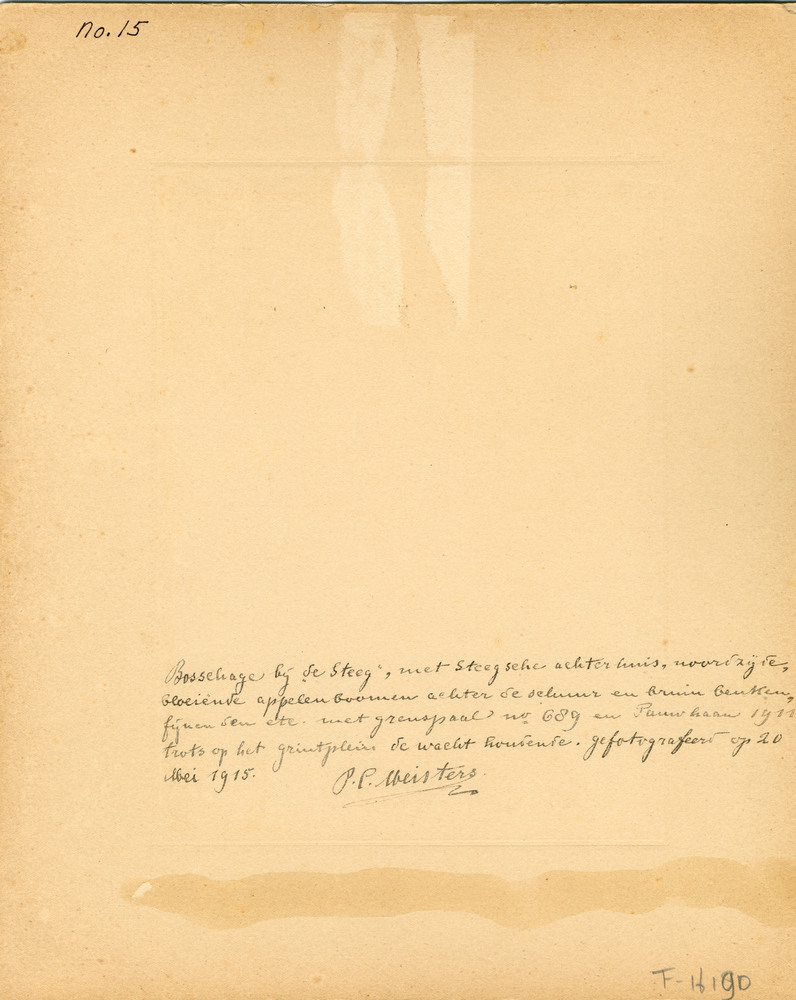 no. 15
Bosschage bij de Steeg", met Steegsche achterhuis, noordzijde,
bloeiende appelenboomen achter de schuur en bruin beuken,
fijnen den etc. met grenspaal no 689 en Pauwhaan 1911
trots op het grintplein de wacht houdende. gefotografeerd op 20
Mei 1915. P.C. Meisters